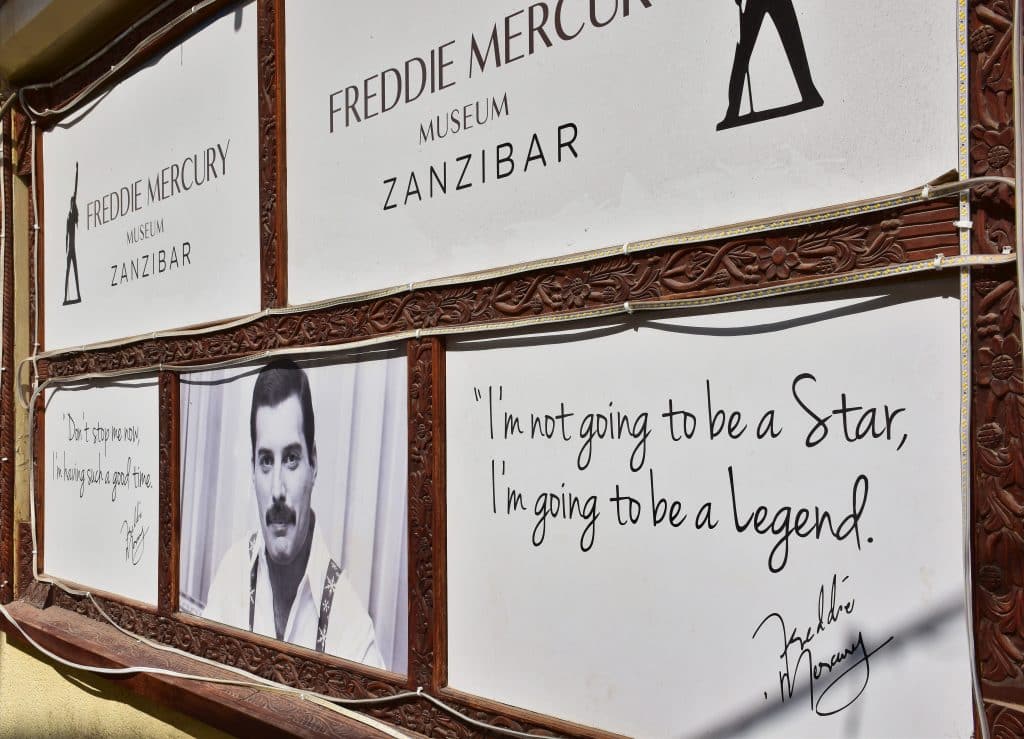 FREDDIE MERCURY
MUSEUM
ZANZIBAR
FREDDIE MERCURY
MUSEUM
ZANZIBAR
"Don't stop me now,
I'm having such a good time.
Freddie
Mercury
"I'm not going to be a Star,
I'm going to be a Legend.
Freddie
Mercury